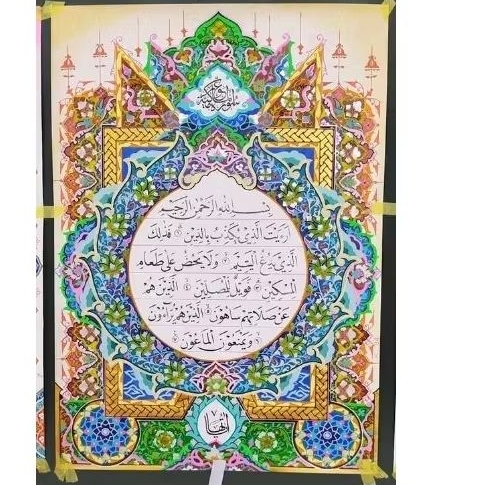 سورة الماعون مكية
بسم الله الرحمن الرحيم
ارءيت الذي يكذب بالدين فذلك
الذي يدع اليتيم ولا يحض على طعام
المسكين فويل للمصلين الذين هم
عن صلاتهم ساهون الذين هم يراءون
ويمنعون الماعون